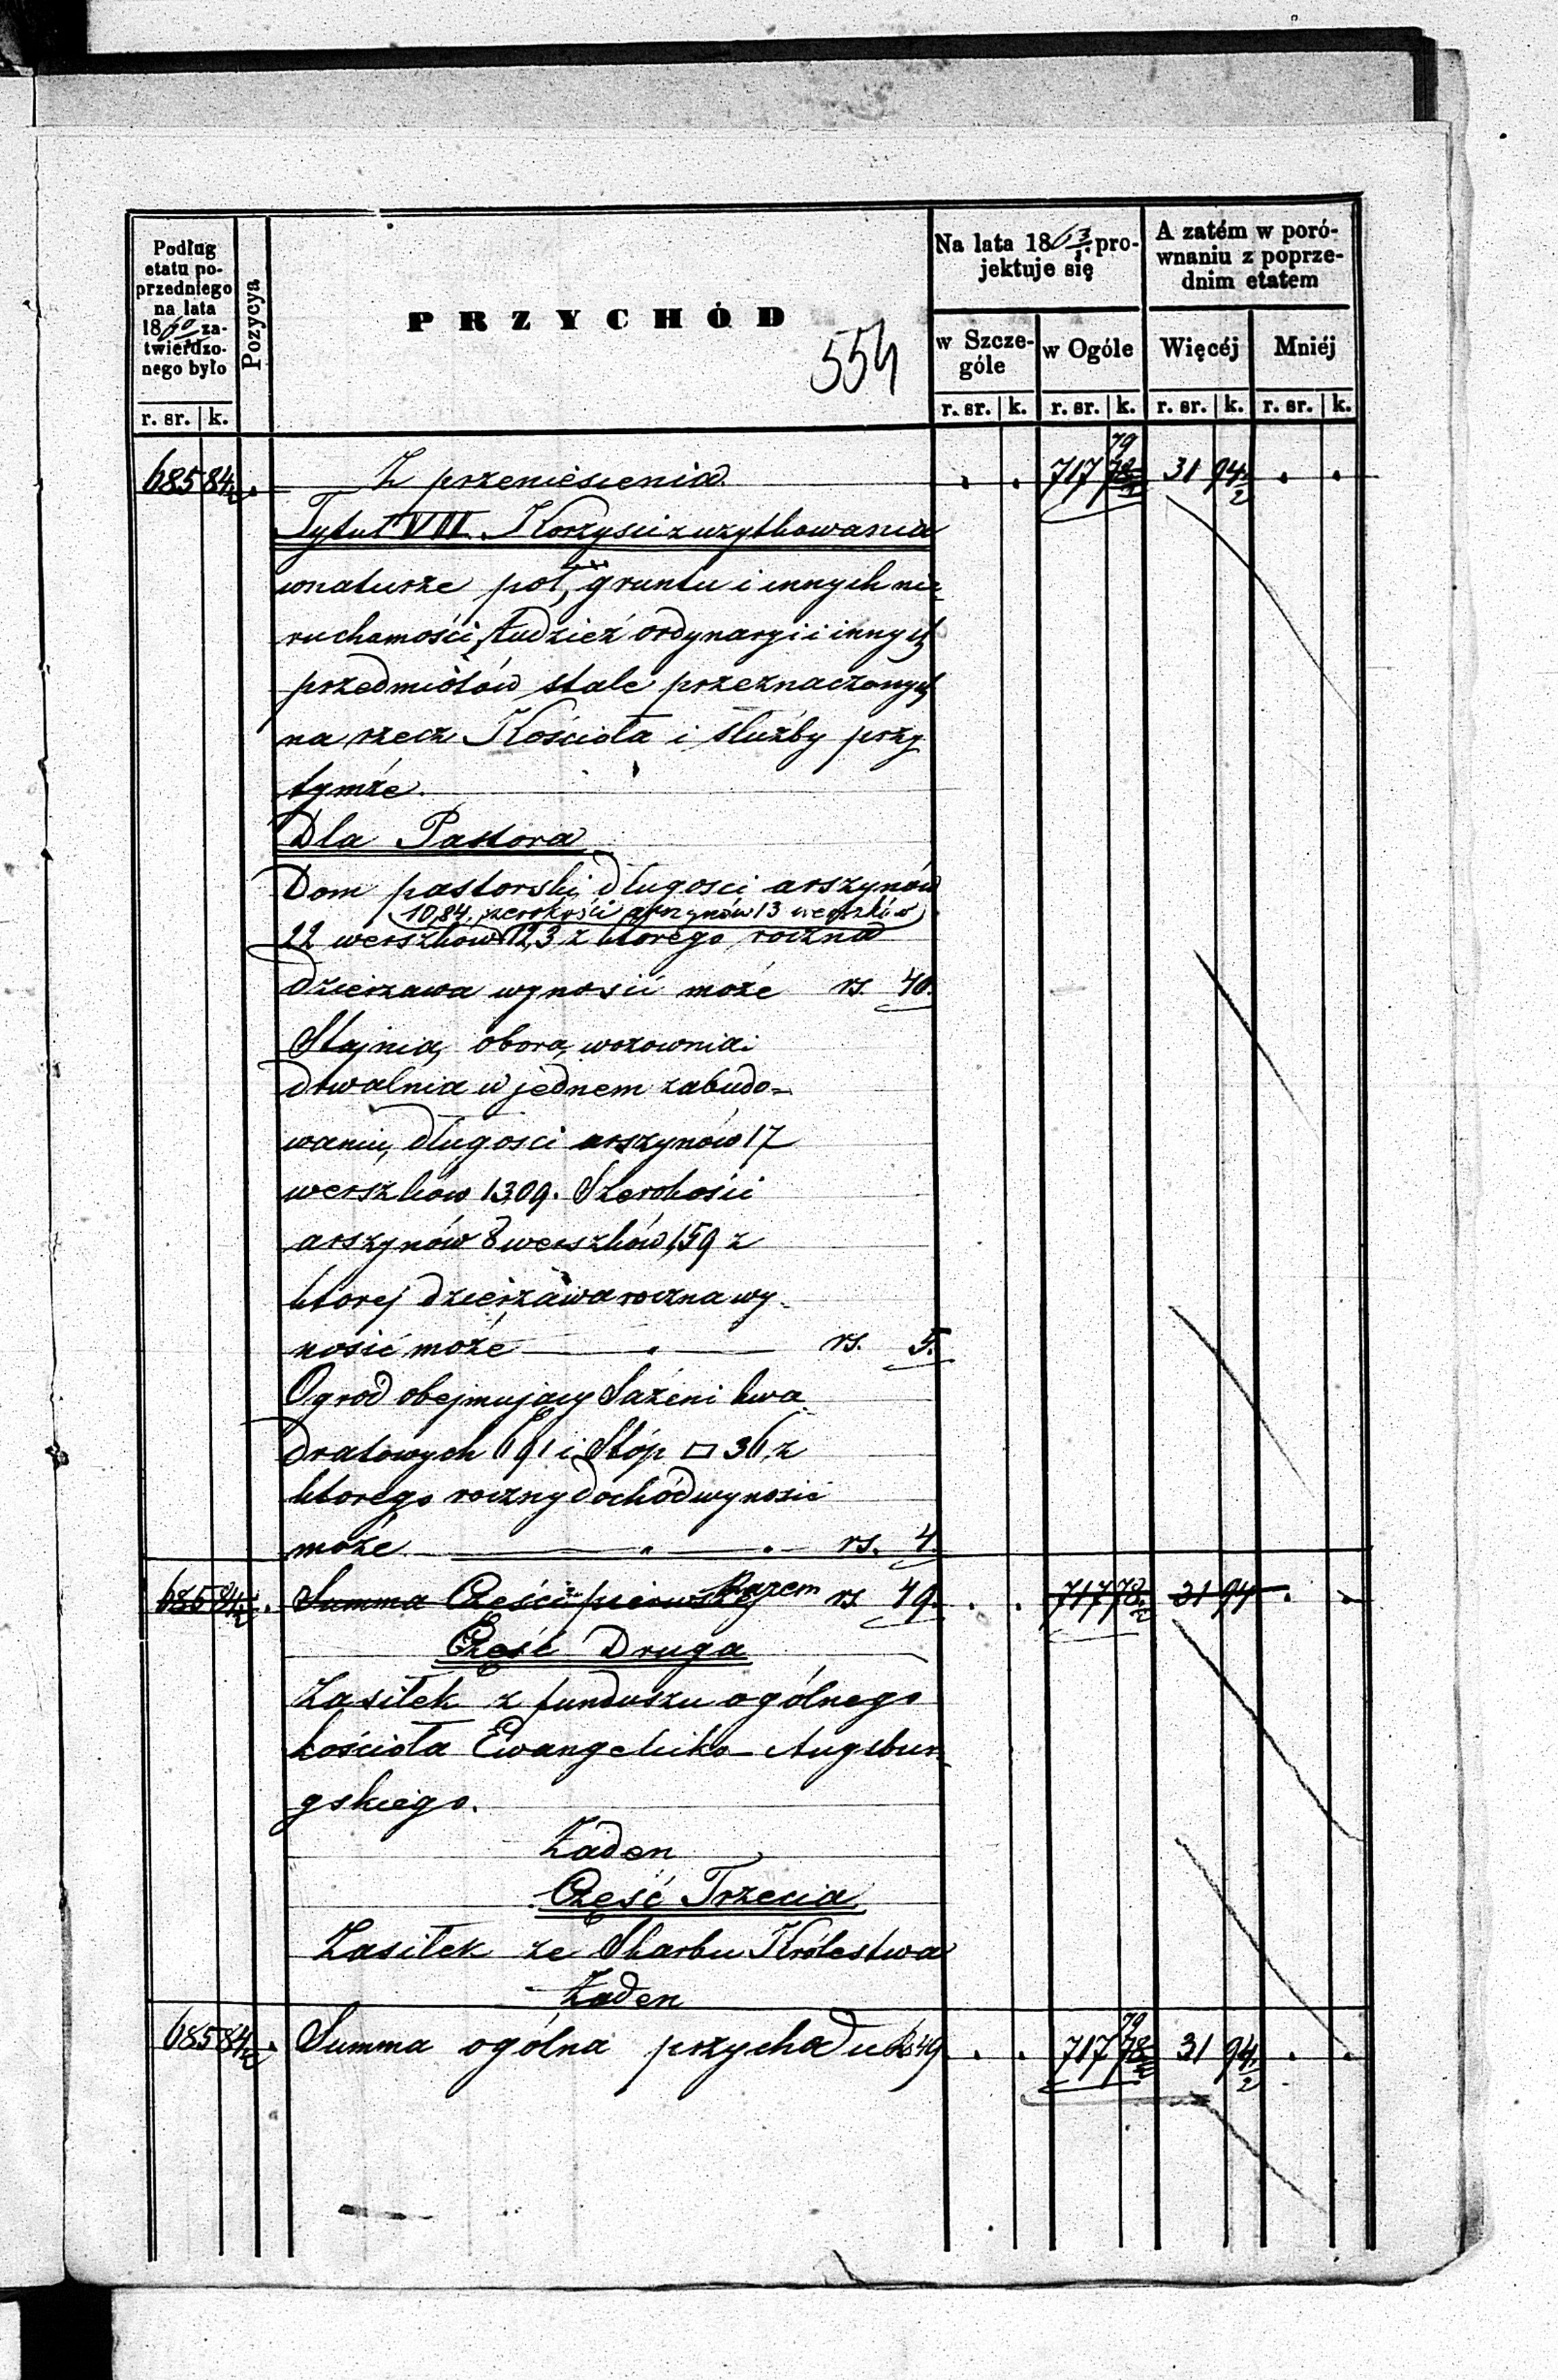 Podług
etatu po-
przedniego
na lata
18 60 za-
twierdzo-
nego było
r. sr. | k.
Pozycya
PRZYCHÓD
554
Na lata 18 63 pro-
jektuje się
w Szcze-
góle
r. sr. | k.
w Ogóle
r. sr. | k.
A zatém w poró-
wnaniu z poprze-
dnim etatem
Więcéj
r. sr. | k.
Mniéj
r. sr. | k.
79
685 84½ . Z przeniesienia . . 717 78½ 31 94½ . .
Tytuł VIII. Korzysci z uzytkowania
w naturze pol, gruntu i innych nie-
ruchomości, tudzież ordynaryi i innych
przedmiotów stale przeznaczonych
na rzecz Kościoła i służby przy
tymże.
Dla Pastora
Dom pastorski długosci arszynów
10,84. szerokości arszynów 13 werszków
22 werszków 12,3 z ktorego roczna
dzierzawa wynosić może rs. 40.
Stajnia, obora, wozownia i
drwalnia w jednem zabudo-
waniu, długosci arszynów 17
werszkow 13,09. Szerokości
arszynów 8 werszków 1,59 z
ktorej dzierzawa roczna wy-
nosić może rs. 5.
Ogrod obejmujący Sażeni kwa-
dratowych 691 i Stóp □ 36, z
ktorego roczny dochód wynosić
może rs. 4.
685 84½ . Summa Części pierwszej Razem rs 49. . . 717 78½ 31 94 . .
Część Druga
Zasiłek z funduszu ogólnego
kościoła Ewangelicko-Augsbur-
gskiego.
Żaden
Część Trzecia
Zasiłek ze Skarbu Królestwa
Żaden
79
685 84½ . Summa ogólna przychodu Rs 49 . . 717 78½ 31 94½ . .